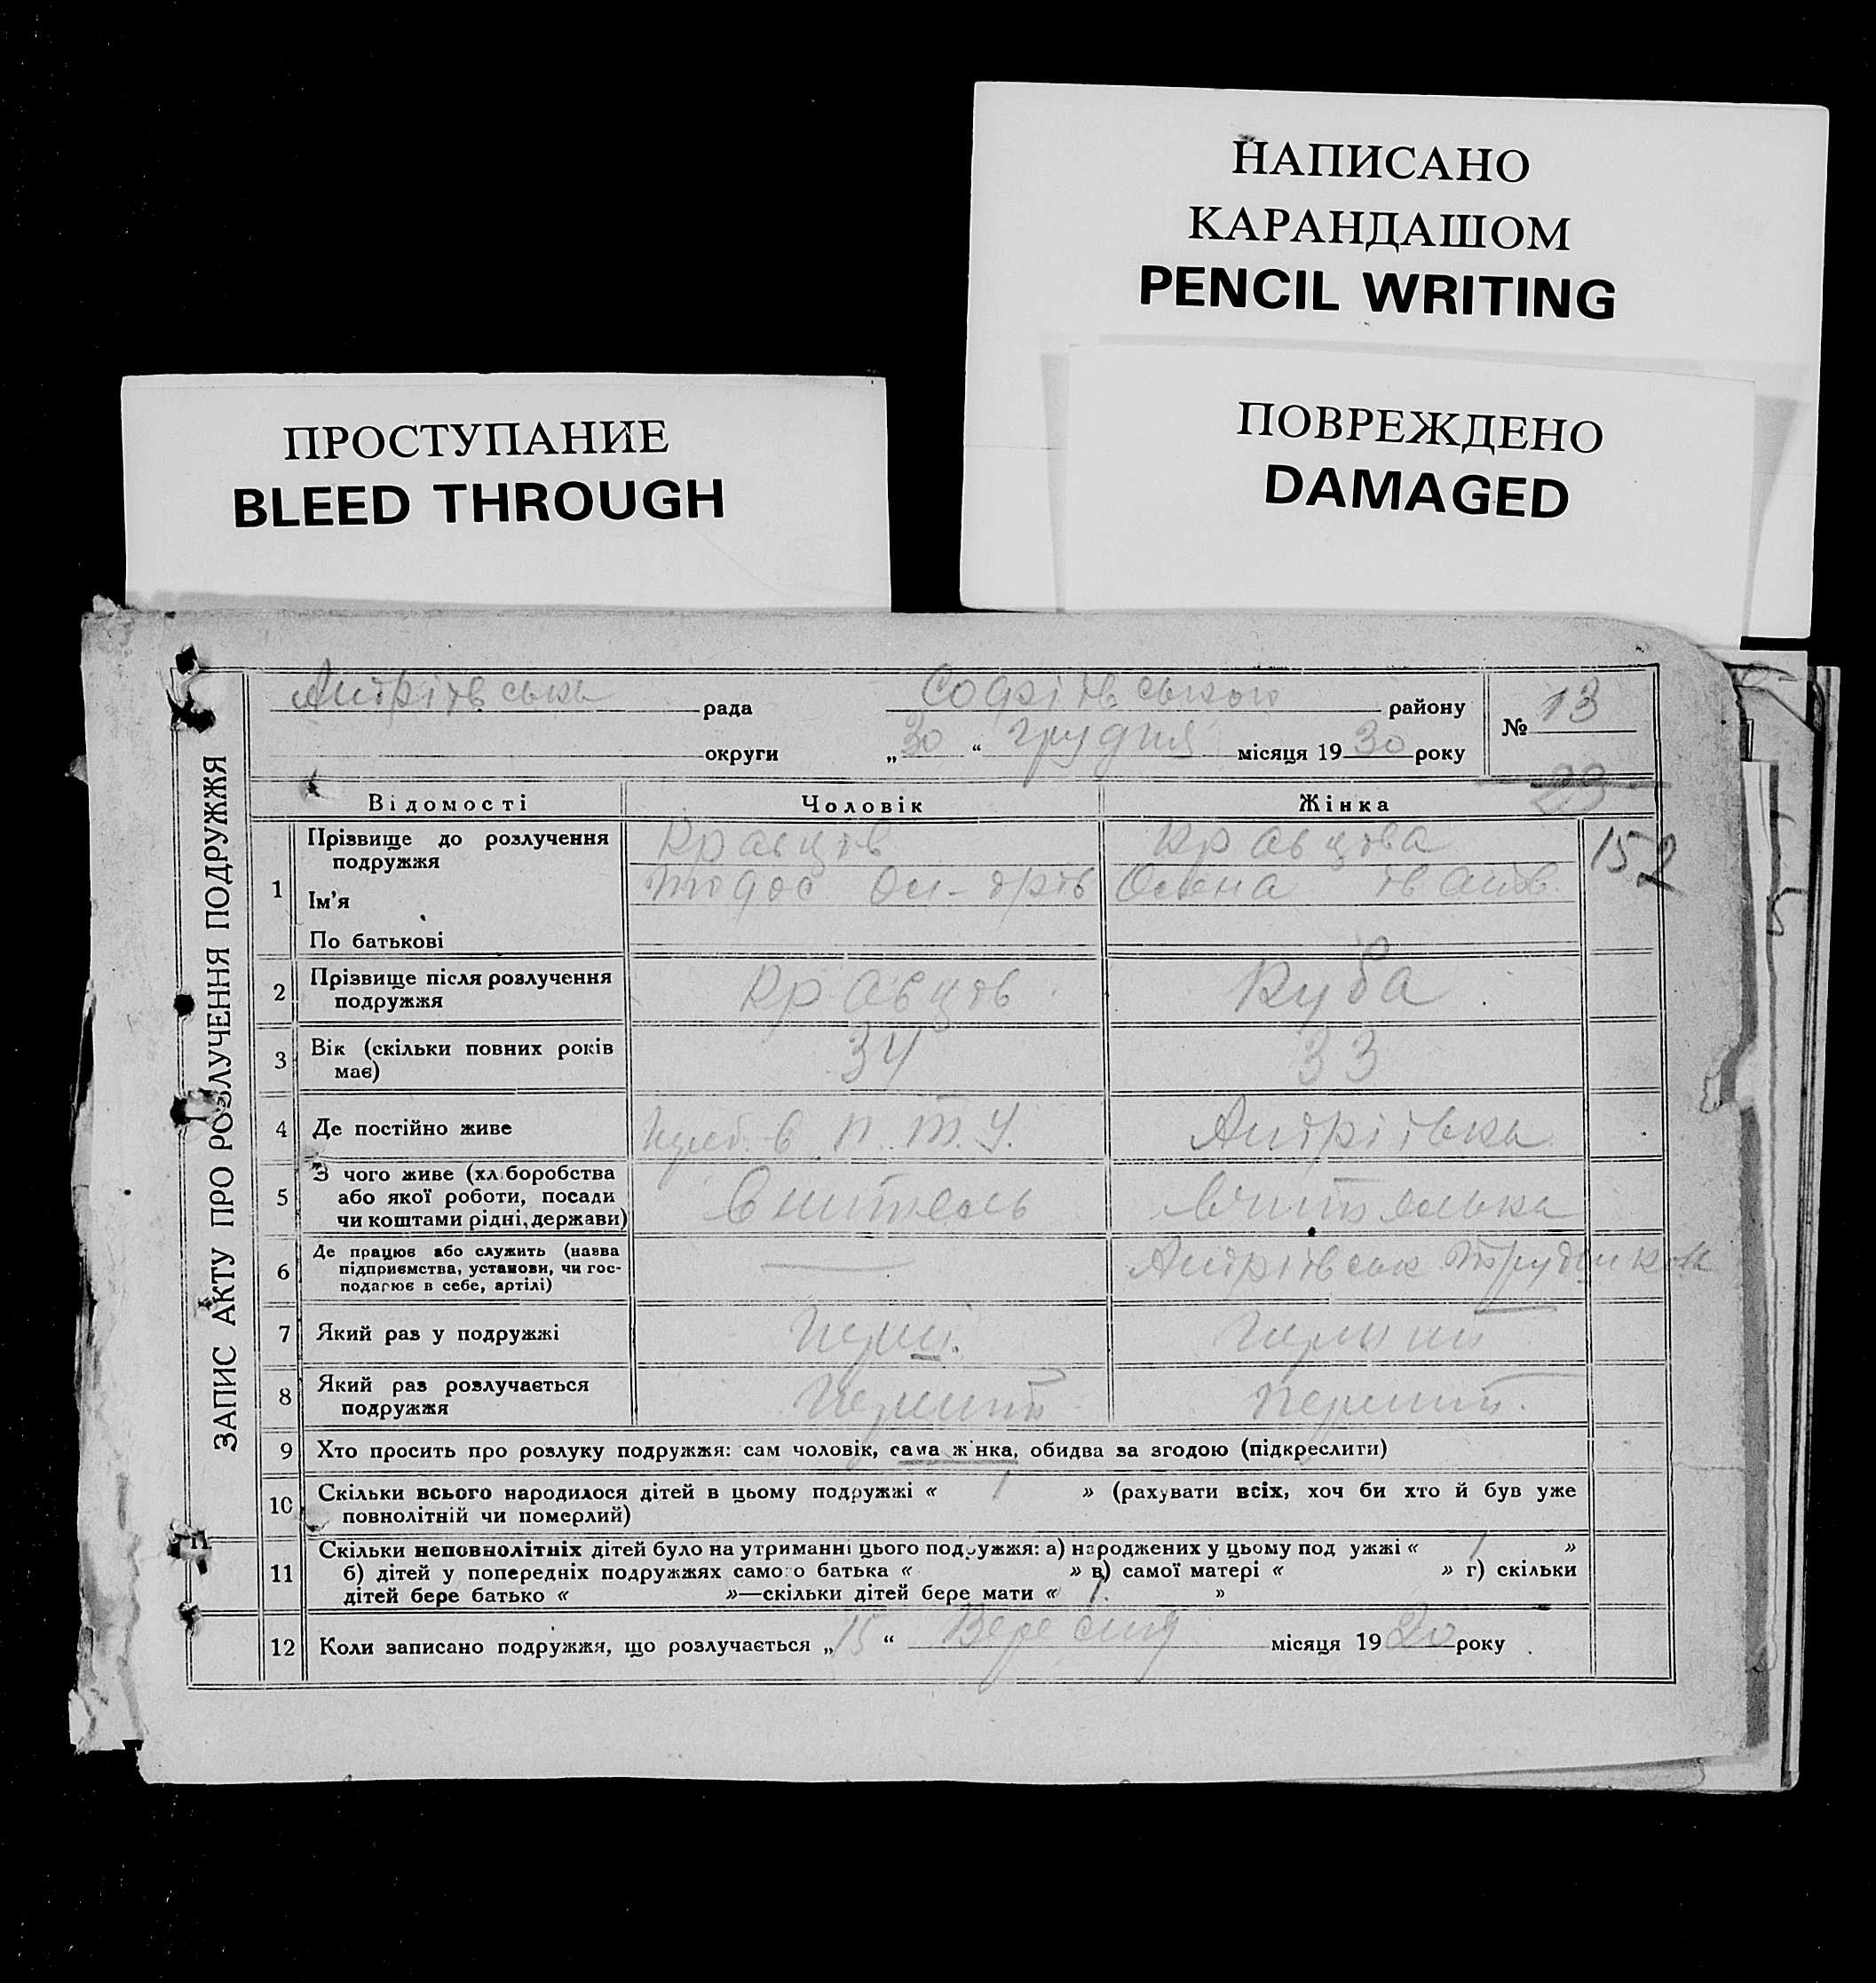 НАПИСАНО
КАРАНДАШОМ
PENCIL WRITING
ПОВРЕЖДЕНО
DAMAGED
ПРОСТУПАНИЕ
BLEED THROUGH
ЗАПИС АКТУ ПРО РОЗЛУЧЕННЯ ПОДРУЖЖЯ
рада району № 13
округи „30“ грудня місяця 1930 року
Відомості Чоловік Жінка
152
1 Прізвище до розлучення подружжя Кравців Кравцова
Ім'я Тодос Олена
По батькові
2 Прізвище після розлучення подружжя Кравців Куба
3 Вік (скільки повних років має) 34 33
4 Де постійно живе
5 З чого живе (хл.боробства або якої роботи, посади чи коштами рідні, держави) Вчителька
6 Де працює або служить (назва підприємства, установи, чи господарює в себе, артілі)
7 Який раз у подружжі Перший
8 Який раз розлучається подружжя Перший Перший.
9 Хто просить про розлуку подружжя: сам чоловік, сама жінка, обидва за згодою (підкреслити)
10 Скільки всього народилося дітей в цьому подружжі « 1 » (рахувати всіх, хоч би хто й був уже
повнолітній чи померлий)
11 Скільки неповнолітніх дітей було на утриманні цього подружжя: а) народжених у цьому под ужжі « 1 »
б) дітей у попередніх подружжях самого батька « » в) самої матері « » г) скільки
дітей бере батько « »—скільки дітей бере мати « 1. »
12 Коли записано подружжя, що розлучається „15“ Вересня місяця 1920 року